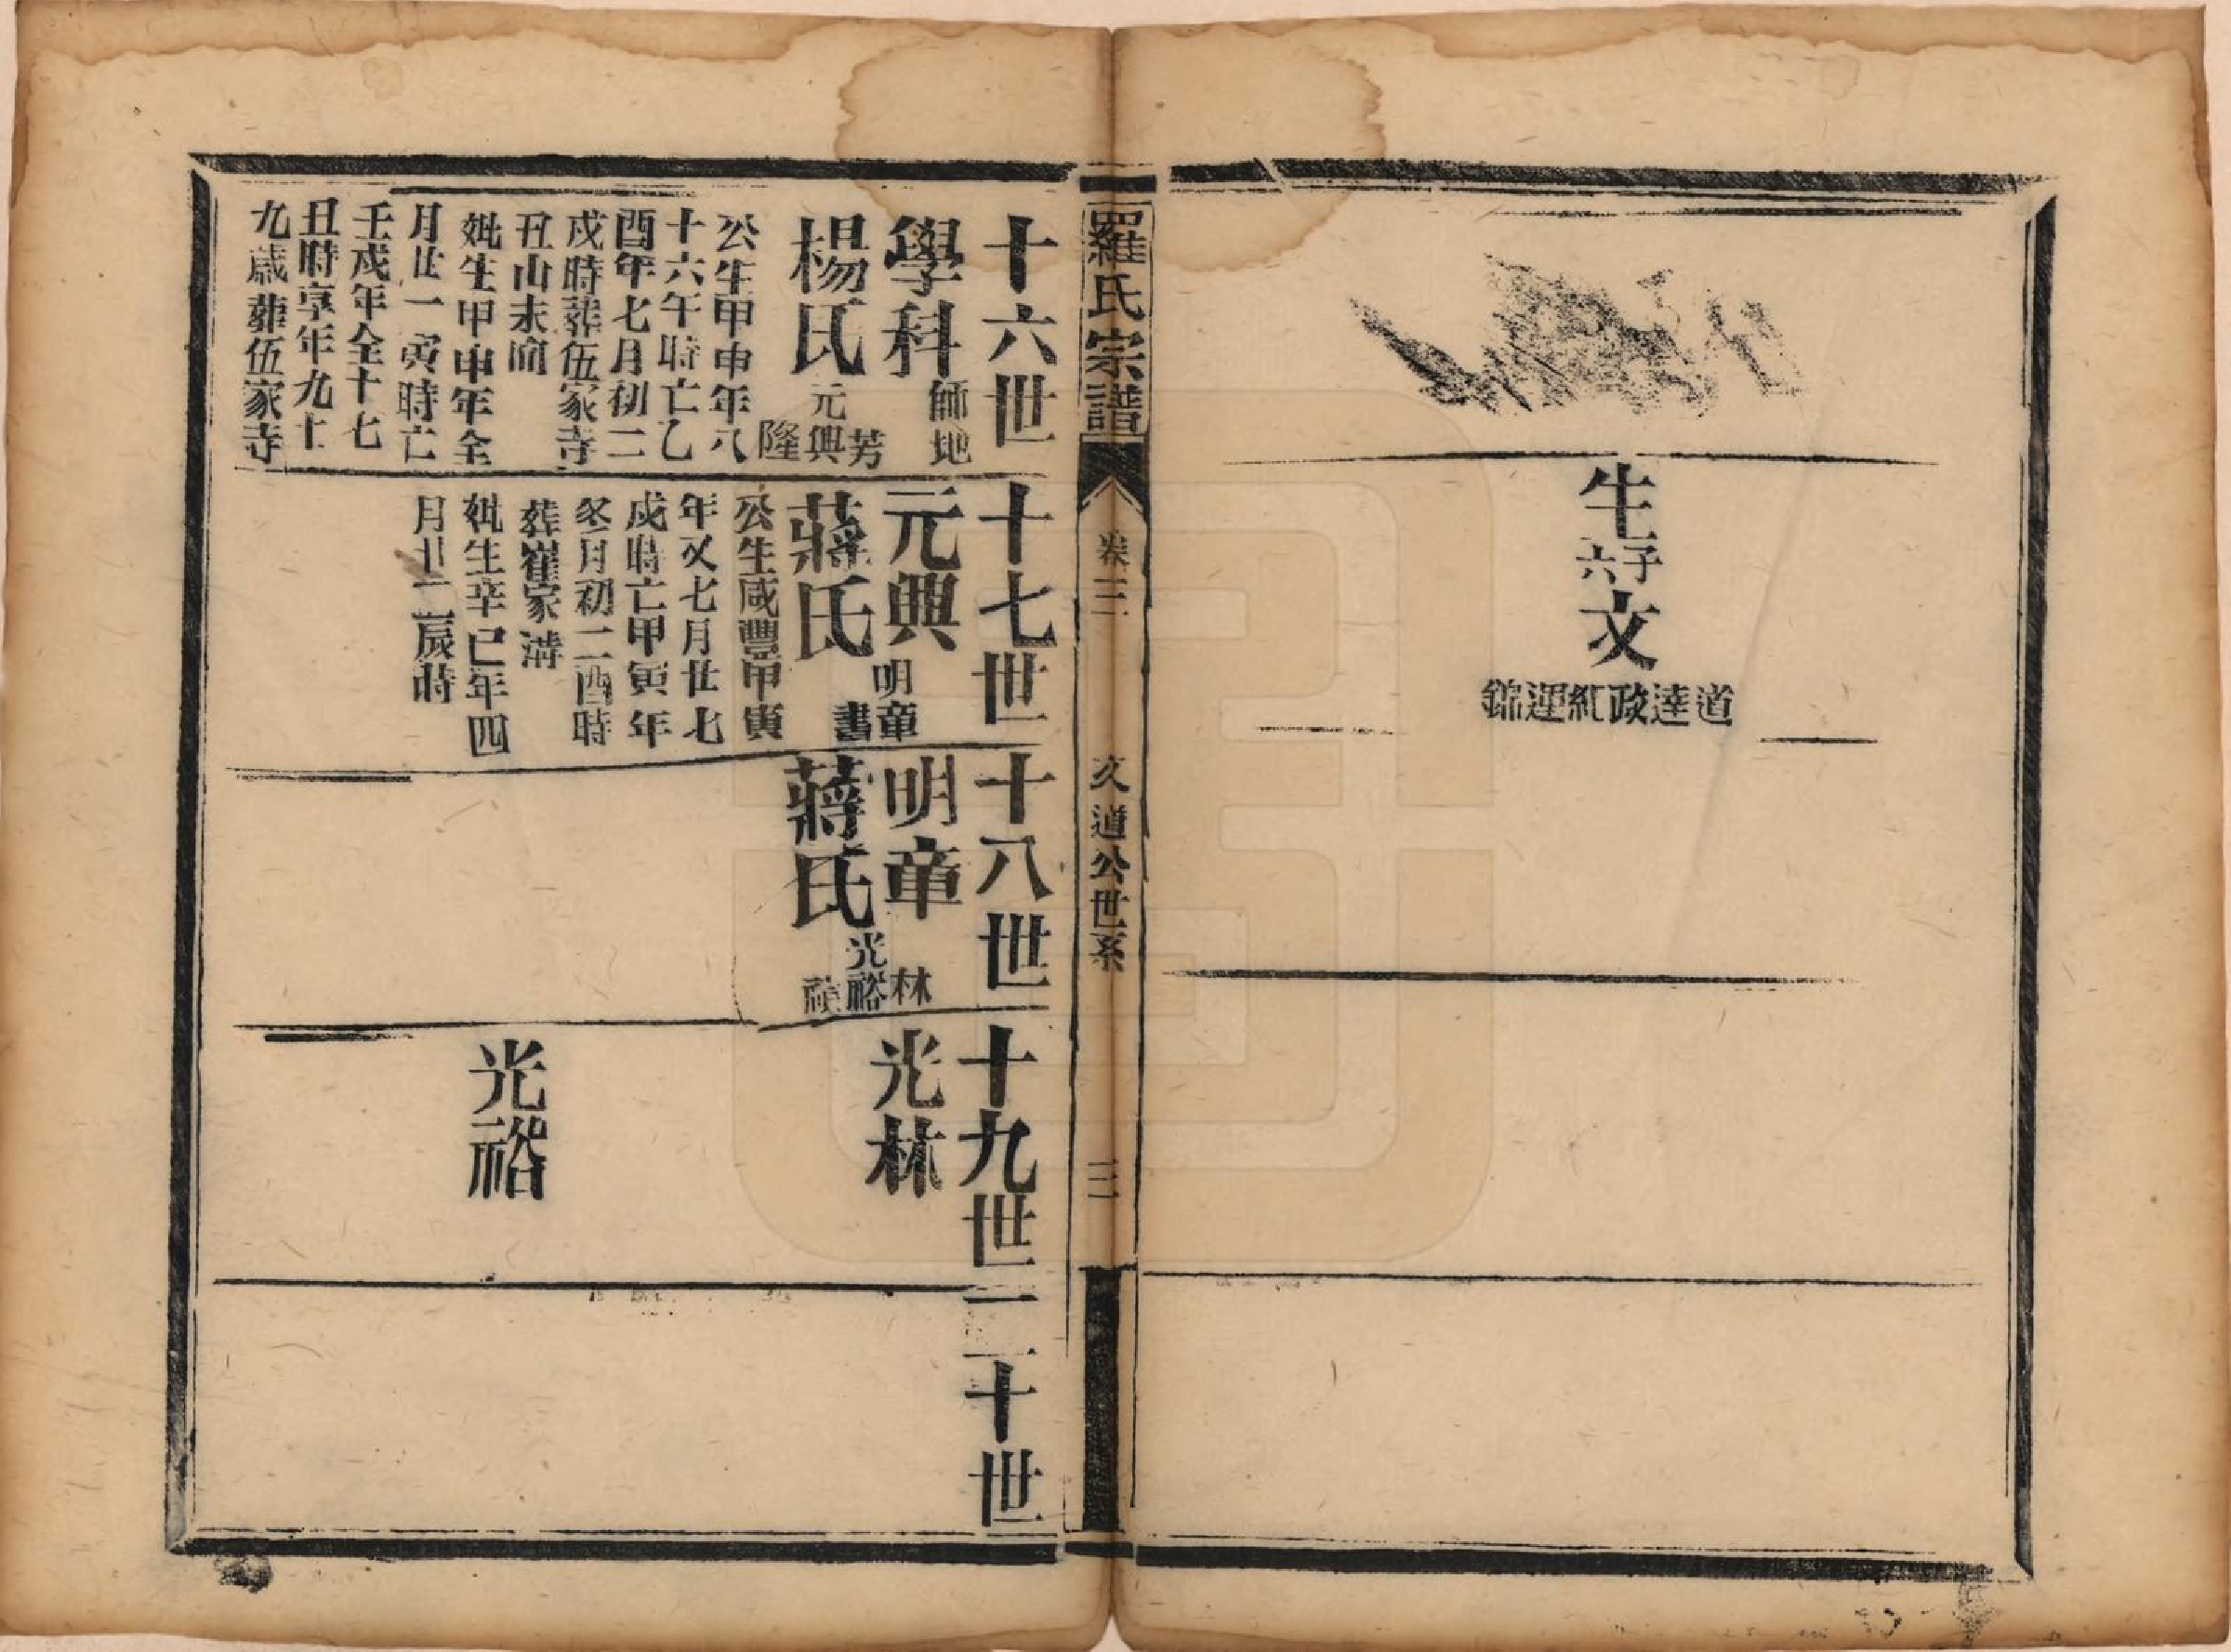 生子六文
道達政紅運錦
羅氏宗譜
卷三
文道公世系
三
十六世
學科師地
楊氏
元興
芳
隆
公生甲申年八
十六午時亡乙
酉年七月初二
戌時葬伍家寺
丑山未向
妣生甲申年全
月廿一寅時亡
壬戌年全十七
丑時享年九十
九歲葬伍家寺
十七世
元興
蔣氏
明章
書
公生咸豐甲寅
年又七月廿七
戌時亡甲寅年
冬月初二酉時
葬崔家溝
妣生辛巳年四
月廿二辰時
十八世
明章
蔣氏
林
光裕
十九世
光林
光裕
二十世